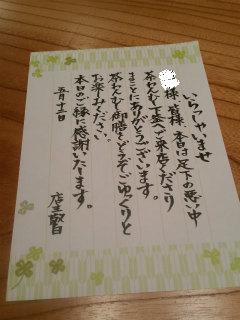 いらっしゃいませ
様・皆様 本日は足下の悪い中
茶わんむし下条へご来店くださり
まことにありがとうございます。
茶わんむし御膳をどうぞごゆっくりと
お楽しみください。
本日のご縁に感謝いたします。
五月十二日
店主督白